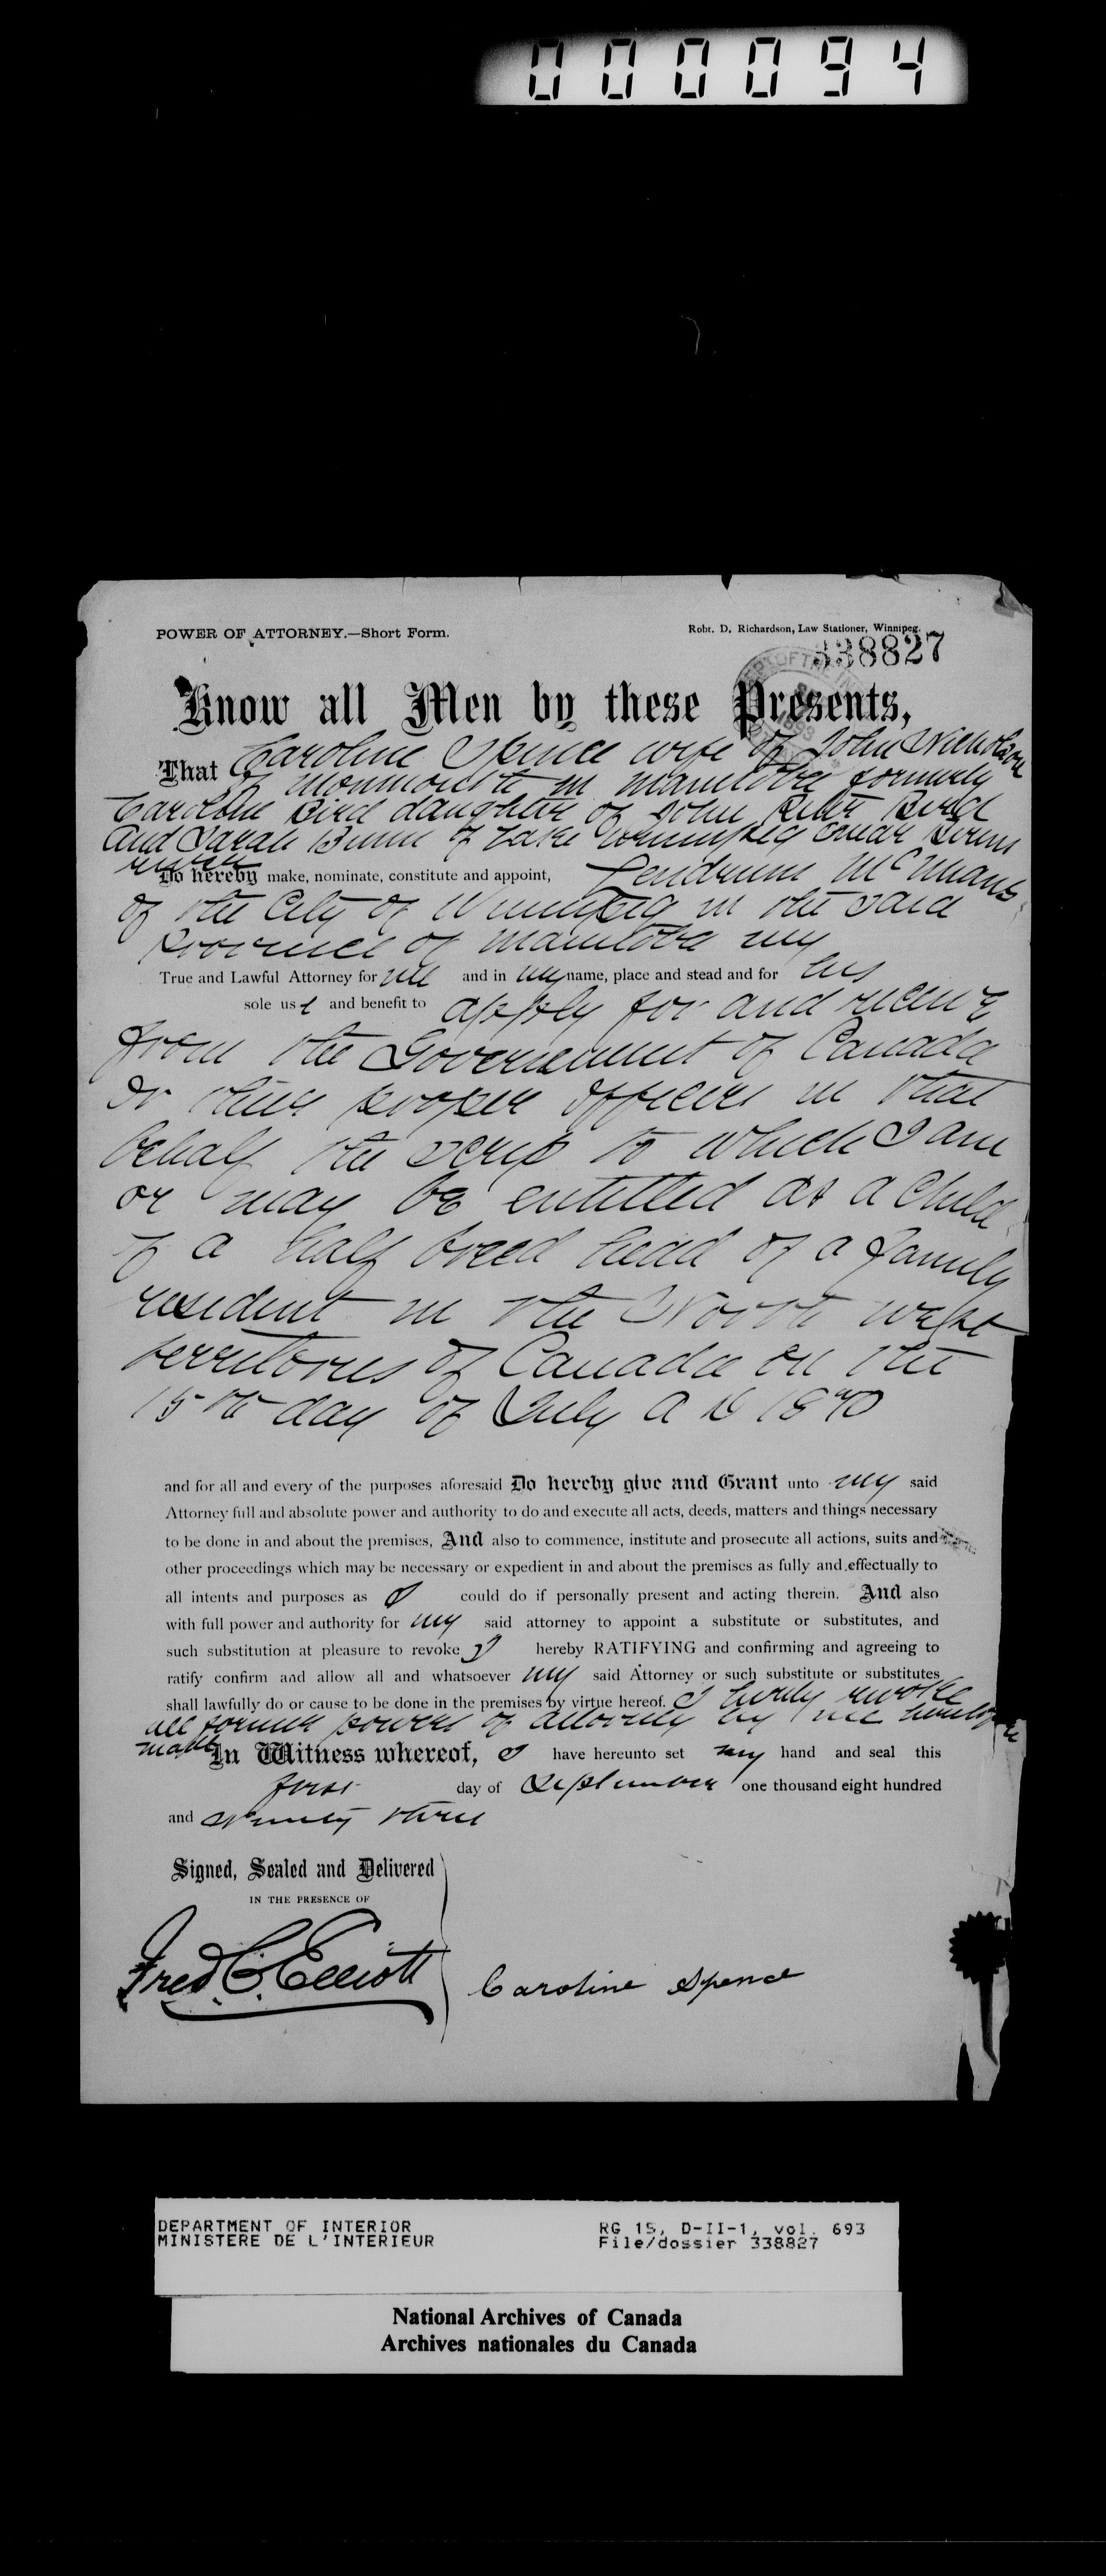 000094
POWER OF ATTORNEY.—Short Form.
Robt. D. Richardson, Law Stationer, Winnipeg.
338827
Know all Men by these Presents,
That Caroline Spence wife of John Nicholson
of in Manitoba formerly
Caroline Bird daughter of John Bird
and Sarah Bird of Lake Winnipeg near
river
Do hereby make, nominate, constitute and appoint, Lendrum McMeans
of the City of Winnipeg in the said
Province of Manitoba my
True and Lawful Attorney for me and in my name, place and stead and for his
sole use and benefit to apply for and receive
from the Government of Canada
or their proper officers in that
behalf the scrip to which I am
or may be entitled as a child
of a half breed head of a family
resident in the North West
territories of Canada on the
15th day of July A D 1870
and for all and every of the purposes aforesaid Do hereby give and Grant unto my said
Attorney full and absolute power and authority to do and execute all acts, deeds, matters and things necessary
to be done in and about the premises, And also to commence, institute and prosecute all actions, suits and
other proceedings which may be necessary or expedient in and about the premises as fully and effectually to
all intents and purposes as I could do if personally present and acting therein. And also
with full power and authority for my said attorney to appoint a substitute or substitutes, and
such substitution at pleasure to revoke I hereby RATIFYING and confirming and agreeing to
ratify confirm and allow all and whatsoever my said Attorney or such substitute or substitutes
shall lawfully do or cause to be done in the premises by virtue hereof. I hereby revoke
all former powers of attorney by me heretofore
made
In Witness whereof, I have hereunto set my hand and seal this
first day of September one thousand eight hundred
and ninety three
Signed, Sealed and Delivered
IN THE PRESENCE OF
Fred C. Elliott
Caroline Spence
DEPARTMENT OF INTERIOR
MINISTERE DE L'INTERIEUR
RG 15, D-II-1, vol. 693
File/dossier 338827
National Archives of Canada
Archives nationales du Canada